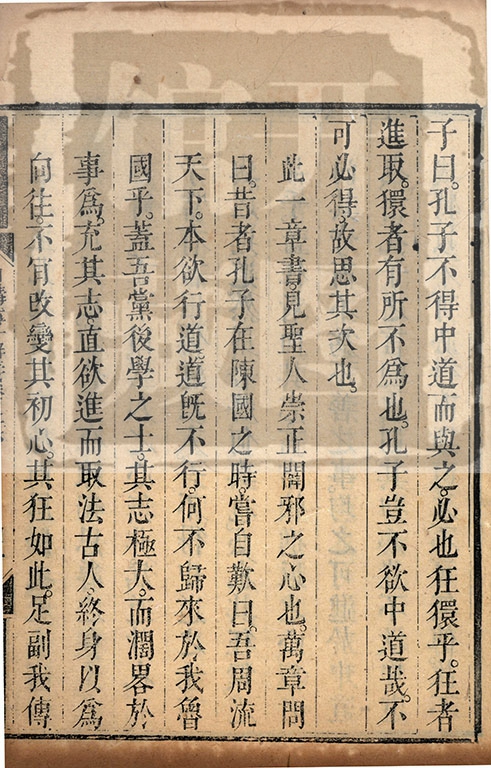 子曰。孔子不得中道而與之。必也狂獧乎。狂者
進取。獧者有所不爲也。孔子豈不欲中道哉。不
可必得。故思其次也。
此一章書見聖人崇正闢邪之心也。萬章問
曰。昔者孔子在陳國之時。嘗自歎曰。吾周流
天下。本欲行道。道旣不行。何不歸來於我魯
國乎。蓋吾黨後學之士。其志極大。而濶畧於
事爲。充其志直欲進而取法古人。終身以爲
向往。不肯改變其初心。其狂如此。足副我傳